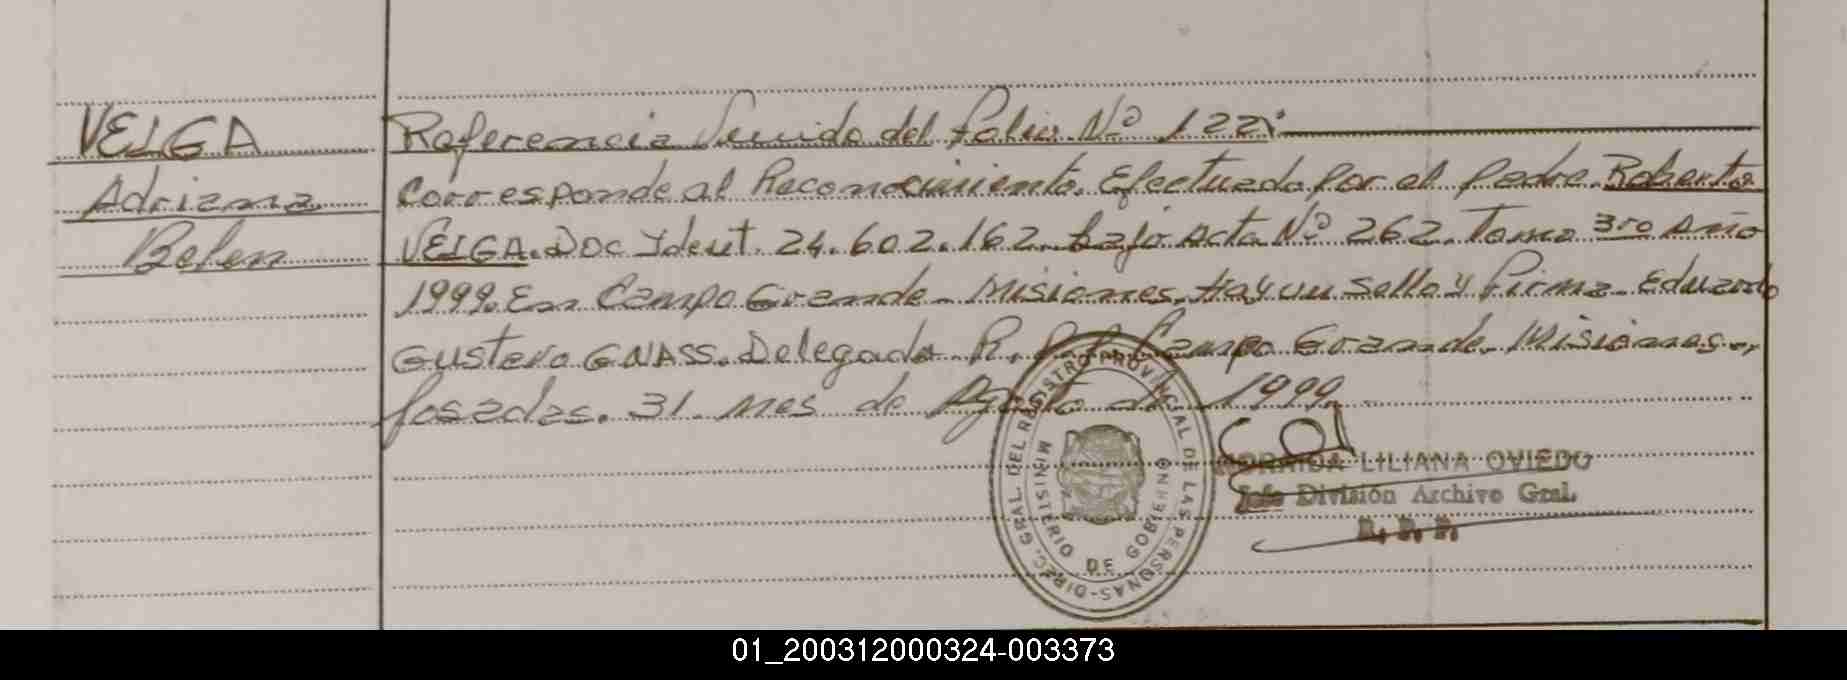 VEIGA
Adriana
Belen
Referencia Venido del folio Nº 122:
Corresponde al Reconocimiento. Efectuado por el padre. Roberto
VEIGA. Doc Ydent. 24.602.162. bajo Acta Nº 262. Tomo 3ro Año
1999. En Campo Grande - Misiones. Hay un Sello y firma. Eduardo
Gustavo GNASS. Delegado R. Campo Grande. Misiones.-
Posadas. 31. mes de Agosto de 1999.
DIREC. GRAL. DEL REGISTRO PROVINCIAL DE LAS PERSONAS
MINISTERIO DE GOBIERNO
LILIANA OVIEDO
Jefe División Archivo Gral.
R. P. P.
01_200312000324-003373